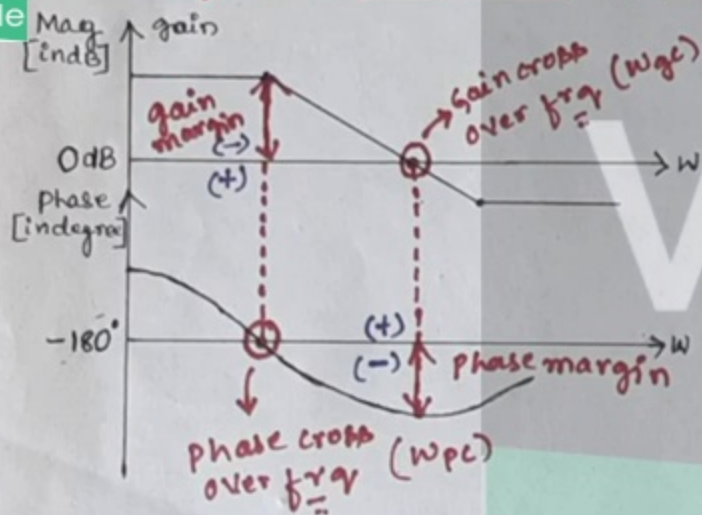 de
Mag
[indB]
gain
gain
margin
(-)
(+)
0dB
W
Gain cross
over frq (Wgc)
Phase
[indegree]
-180°
(+)
(-)
W
Phase margin
Phase cross
over frq (Wpc)